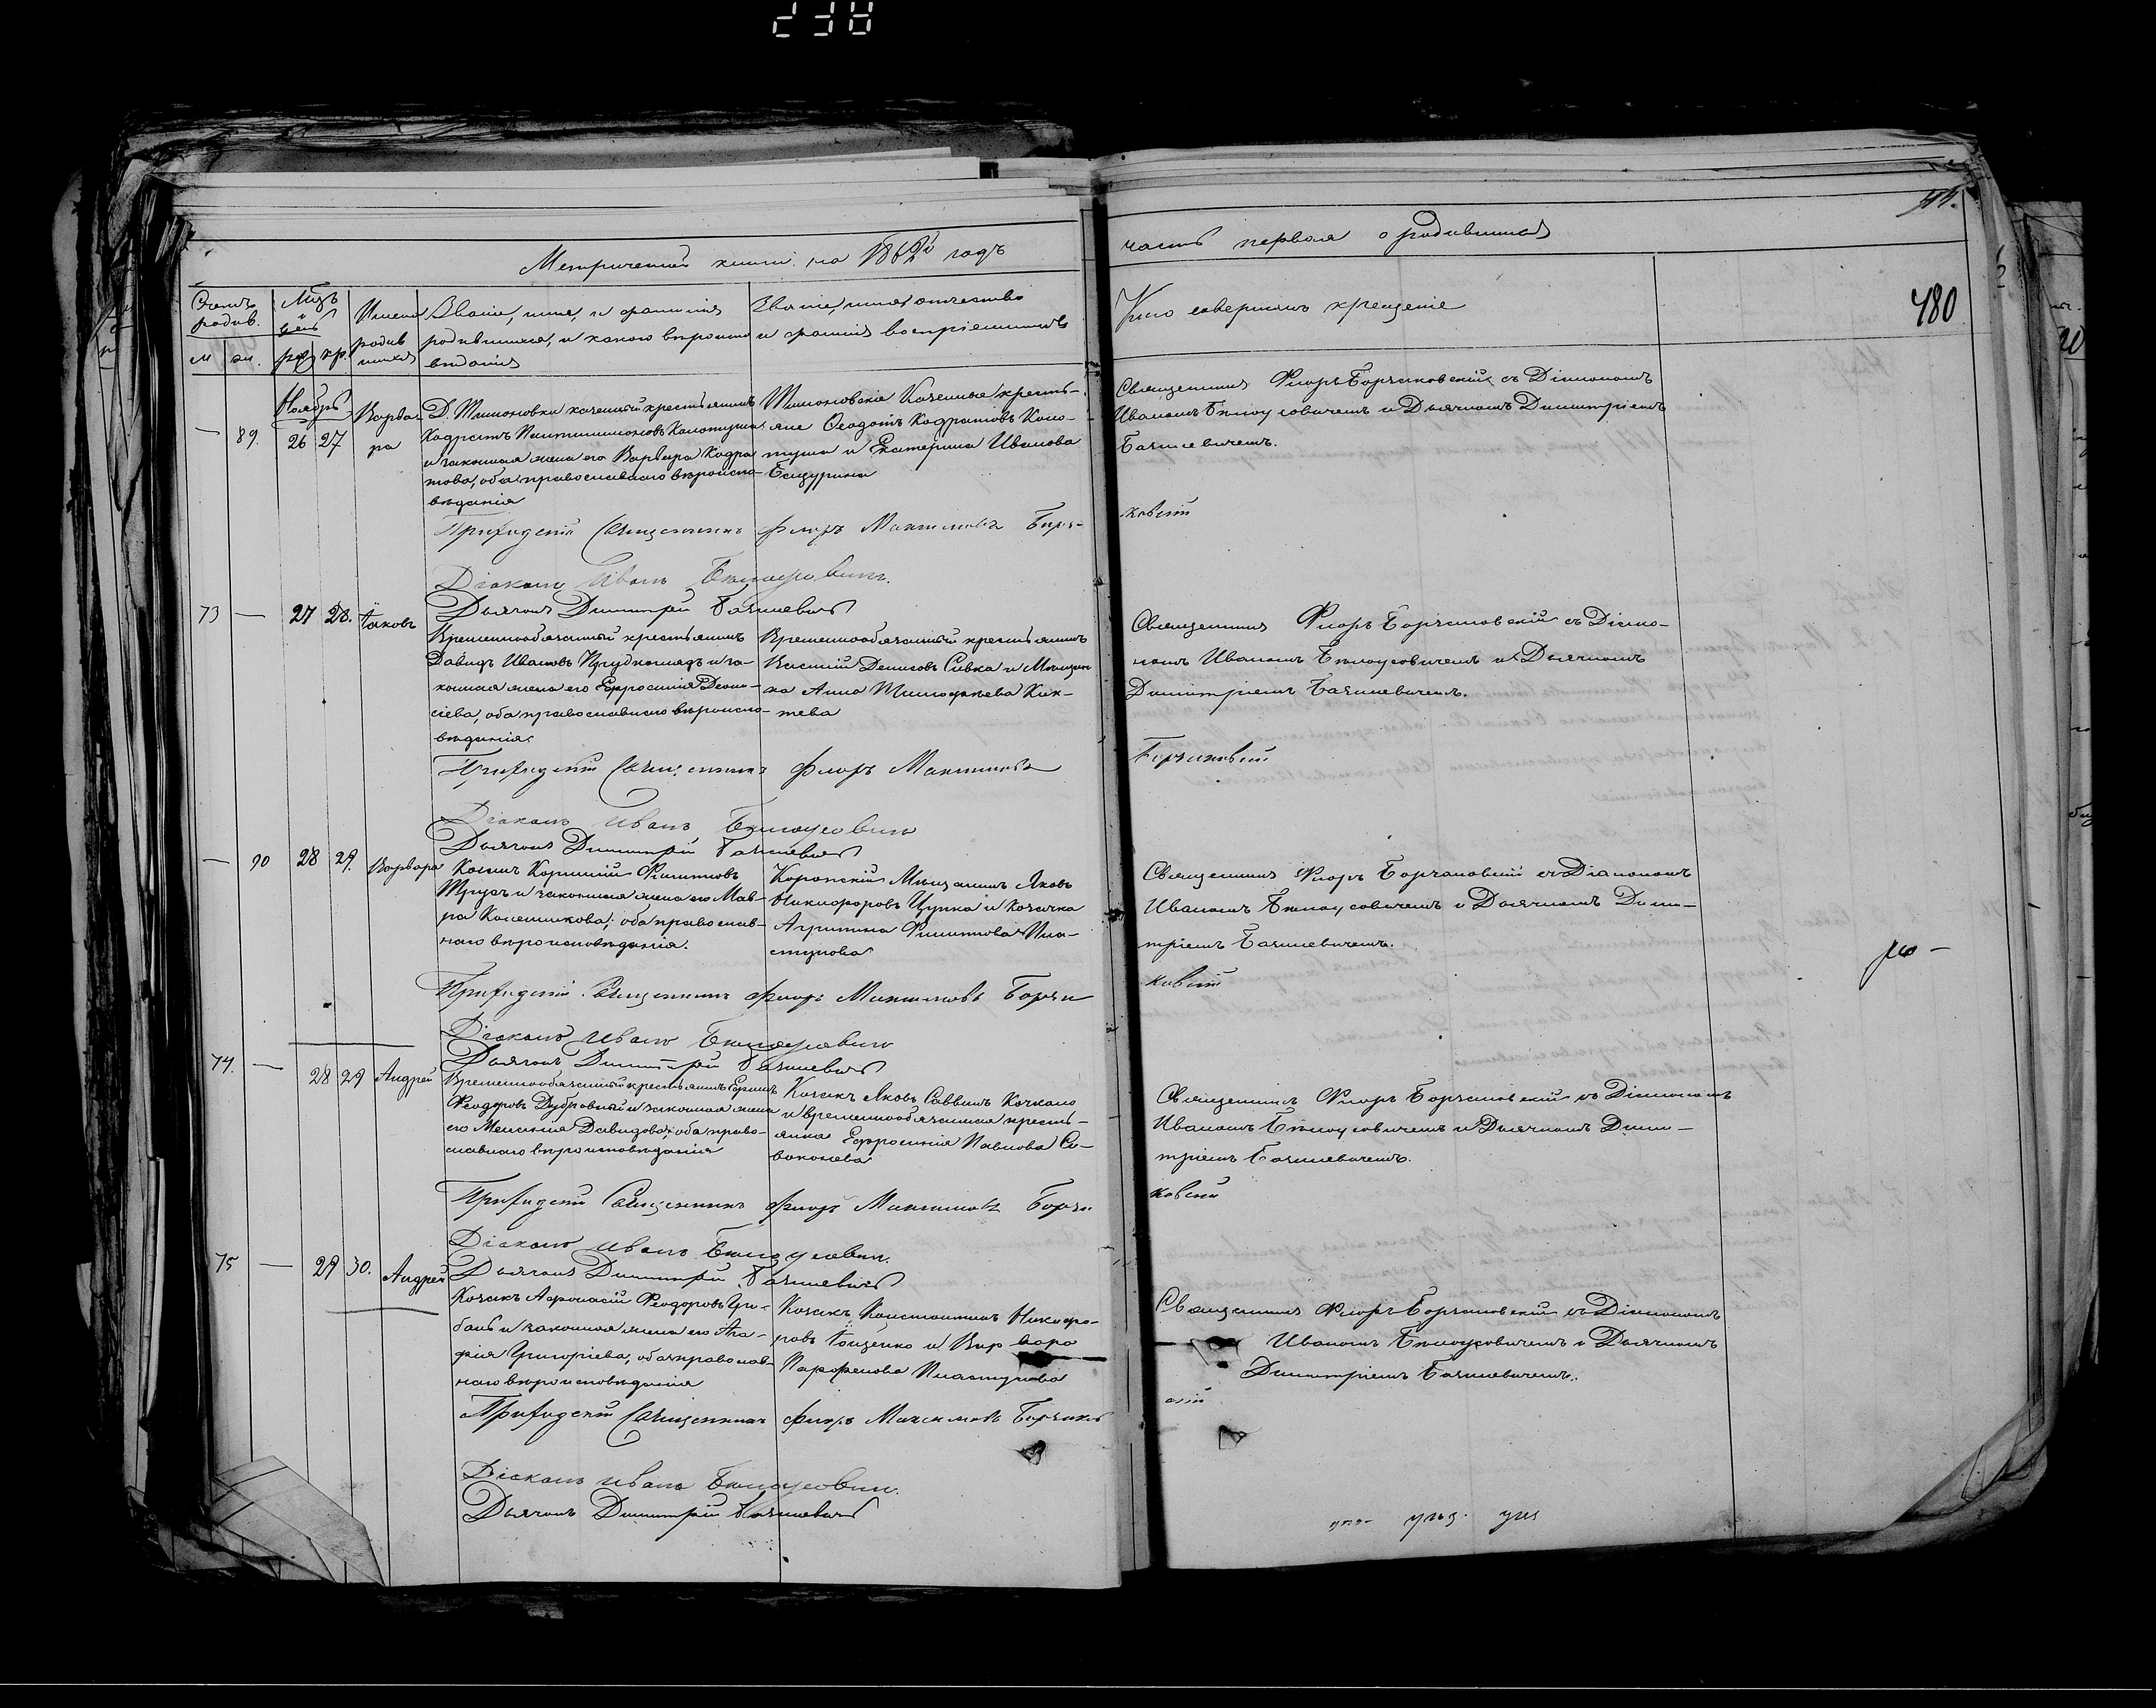 238
Метрической книги на 1862й годъ
часть первая о родившихся
480
Счетъ родив.
Мцъ и день
Имена родив
шихся
Званіе, имя, и фамилія
родившихся, и какого вѣроиспо
вѣданія
Званіе, имя, отчество
и фамилія воспріемниковъ
Кто совершалъ крещеніе
м ж. рж. кр.
Ноябрь
— 89. 26 27
Варва-
ра
Д. казенный крестьянинъ
и законная жена его Варвара Кодра
това, оба православнаго вѣроиспо-
вѣданія
Казенные крестья-
яне Ѳеодотъ Кодратовъ Коло-
туша и Екатерина Иванова
Священникъ Флоръ Борчаковскій съ Діакономъ
Иваномъ Бѣлоусовичемъ и Дьячкомъ Димитріемъ
Базилевичемъ.
Приходскій Священникъ Флоръ Максимовъ Борч-
ковскій
Діаконъ Иванъ Бѣлоусовичъ.
Дьячокъ Димитрій Базилевичъ
73 — 27 28. Іаковъ
Временнообязанный крестьянинъ
Давидъ Ивановъ и за-
конная жена его Ефросинія Деони-
сіева, оба православнаго вѣроиспо-
вѣданія.
Временнообязанный крестьянинъ
Василій Денисовъ Сивка и Мѣщан
ка Анна Тимофѣева Кик-
тева
Священникъ Флоръ Борчаковскій съ Діако-
номъ Иваномъ Бѣлоусовичемъ и Дьячкомъ
Димитріемъ Базилевичемъ.
Приходскій Священникъ Флоръ Максимовъ
Борчаковскій
Діаконъ Иванъ Бѣлоусовичъ
Дьячокъ Димитрій Базилевичъ
— 90 28 29. Варвара
Козакъ Корнилій Филиповъ
и законная жена его Мав-
ра Колесникова; оба православ-
наго вѣроисповѣданія.
Коропскій Мѣщанинъ Яковъ
Никифоровъ Цупка и Козачка
Агрипина Филипова Пла-
стунова
Священникъ Флоръ Борчаковскій съ Діакономъ
Иваномъ Бѣлоусовичемъ и Дьячкомъ Дими-
тріемъ Базилевичемъ.
Приходскій Священникъ Флоръ Максимовъ Борча
ковскій
Діаконъ Иванъ Бѣлоусовичъ
Дьячокъ Димитрій Базилевичъ
74. — 28 29 Андрей
Временнообязанный крестьянинъ
Ѳеодоровъ Дубровный и законная жена
его Меланія Давидова; оба право-
славнаго вѣроисповѣданія
Козакъ Яковъ Саввинъ
и временнообязанная кресть-
янка Ефросинія Павлова Со-
Священникъ Флоръ Борчаковскій съ Діакономъ
Иваномъ Бѣлоусовичемъ и Дьячкомъ Дими-
тріемъ Базилевичемъ.
Приходскій Священникъ Флоръ Максимовъ Борча
ковскій
Діаконъ Иванъ Бѣлоусовичъ.
Дьячокъ Димитрій Базилевичъ
75 — 29 30. Андрей
Козакъ Афонасій Ѳеодоровъ Гри-
бань и законная жена его Ага-
фія Григоріева, оба православ-
наго вѣроисповѣданія
Козакъ Константинъ Никифо-
ровъ Гоиденко и Варвара
Парфенова Пластунова
Священникъ Флоръ Борчаковскій съ Діакономъ
Иваномъ Бѣлоусовичемъ и Дьячкомъ
Димитріемъ Базилевичемъ.
Приходскій Священникъ Флоръ Максимовъ Борчаков
скій
Діаконъ Иванъ Бѣлоусовичъ.
Дьячокъ Димитрій Базилевичъ